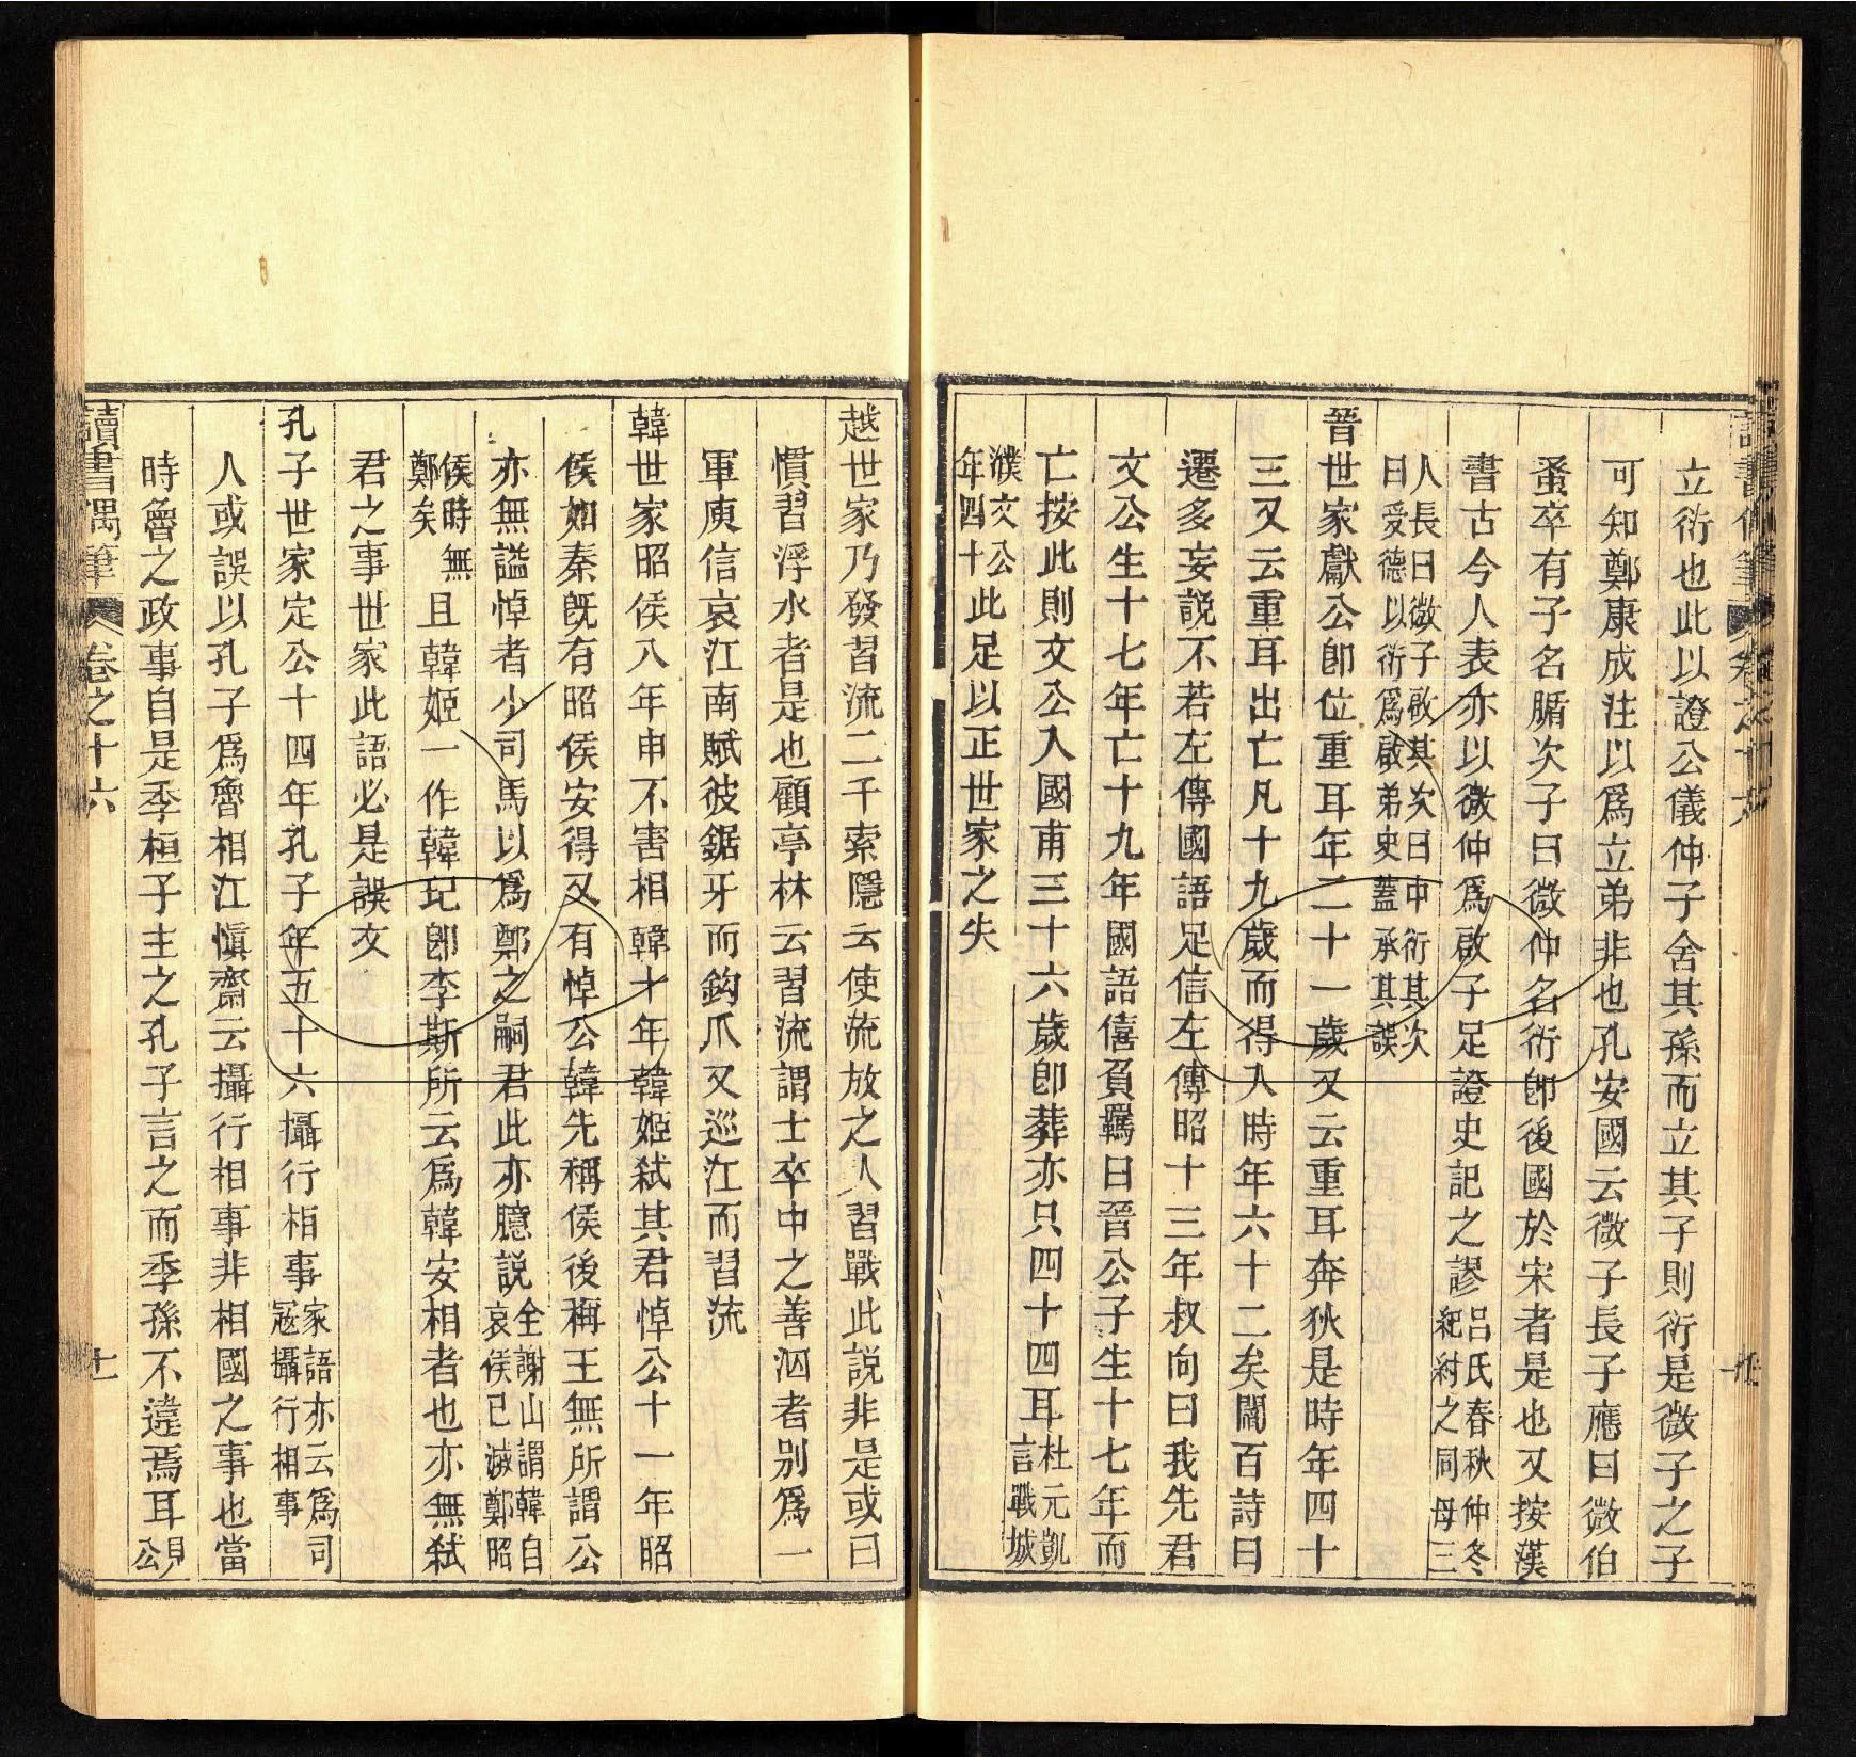 立衍也此以證公儀仲子舍其孫而立其子則衍是微子之子
可知鄭康成注以爲立弟非也孔安國云微子長子應曰微伯
蚤卒有子名腯次子曰微仲名衍卽後國於宋者是也又按漢
書古今人表亦以微仲爲啟子足證史記之謬呂氏春秋仲冬紀紂之同母三
人長曰微子啟其次曰中衍其次曰受德以衍爲啟弟史蓋承其誤
晉世家獻公卽位重耳年二十一歲又云重耳奔狄是時年四十
三又云重耳出亡凡十九歲而得入時年六十二矣閻百詩曰
遷多妄說不若左傳國語足信左傳昭十三年叔向曰我先君
文公生十七年亡十九年國語僖負羈曰晉公子生十七年而
亡按此則文公入國甫三十六歲卽葬亦只四十四耳杜元凱言戰城
濮文公年四十此足以正世家之失
越世家乃發習流二千索隱云使流放之人習戰此說非是或曰
慣習浮水者是也顧亭林云習流謂士卒中之善泅者别爲一
軍庾信哀江南賦彼鋸牙而鈎爪又巡江而習流
韓世家昭侯八年申不害相韓十年韓姬弑其君悼公十一年昭
侯如秦旣有昭侯安得又有悼公韓先稱侯後稱王無所謂公
亦無謚悼者少司馬以爲鄭之嗣君此亦臆說全謝山謂韓自哀侯已滅鄭昭
侯時無鄭矣且韓姬一作韓玘卽李斯所云爲韓安相者也亦無弑
君之事世家此語必是誤文
孔子世家定公十四年孔子年五十六攝行相事家語亦云爲司寇攝行相事
人或誤以孔子爲魯相江愼齋云攝行相事非相國之事也當
時魯之政事自是季桓子主之孔子言之而季孫不違焉耳見公
讀書偶筆 卷之十六 十